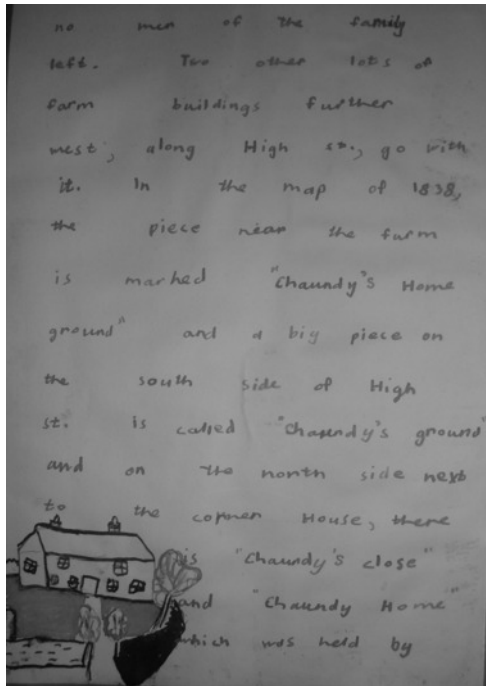 no men of the family
left. Two other lots of
farm buildings further
west, along High st., go with
it. In the map of 1838,
the piece near the farm
is marked "Chaundy's Home
ground" and a big piece on
the south side of High
st. is called "Chaundy's ground"
and on the north side next
to the corner House, there
is "Chaundy's close"
and "Chaundy Home"
which was held by